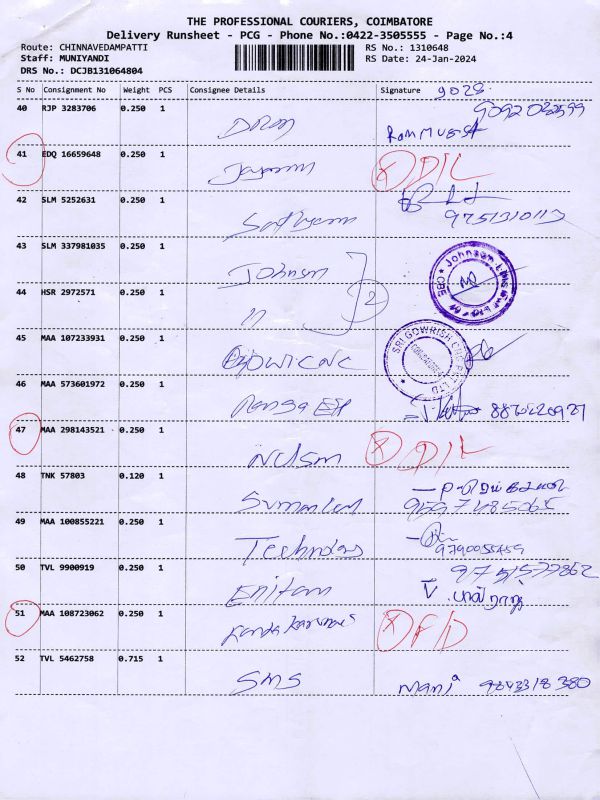 THE PROFESSIONAL COURIERS, COIMBATORE
Delivery Runsheet - PCG - Phone No.:0422-3505555 - Page No.:4
Route: CHINNAVEDAMPATTI RS No.: 1310648
Staff: MUNIYANDI RS Date: 24-Jan-2024
DRS No.: DCJB131064804
S No Consignment No Weight PCS Consignee Details Signature 9028
40 RJP 3283706 0.250 1
41 EDQ 16659648 0.250 1 Jayaram D/L
42 SLM 5252631 0.250 1 Sathyam 9751310113
43 SLM 337981035 0.250 1 Johnson
44 HSR 2972571 0.250 1 11 2
45 MAA 107233931 0.250 1 SRI GOWRISH CNC PVT LTD
46 MAA 573601972 0.250 1 Ranga
47 MAA 298143521 0.250 1 D/L
48 TNK 57803 0.120 1
49 MAA 100855221 0.250 1 9790055459
50 TVL 9900919 0.250 1 9751577862
51 MAA 108723062 0.250 1 F/D
52 TVL 5462758 0.715 1 SMS Mani 9843318380